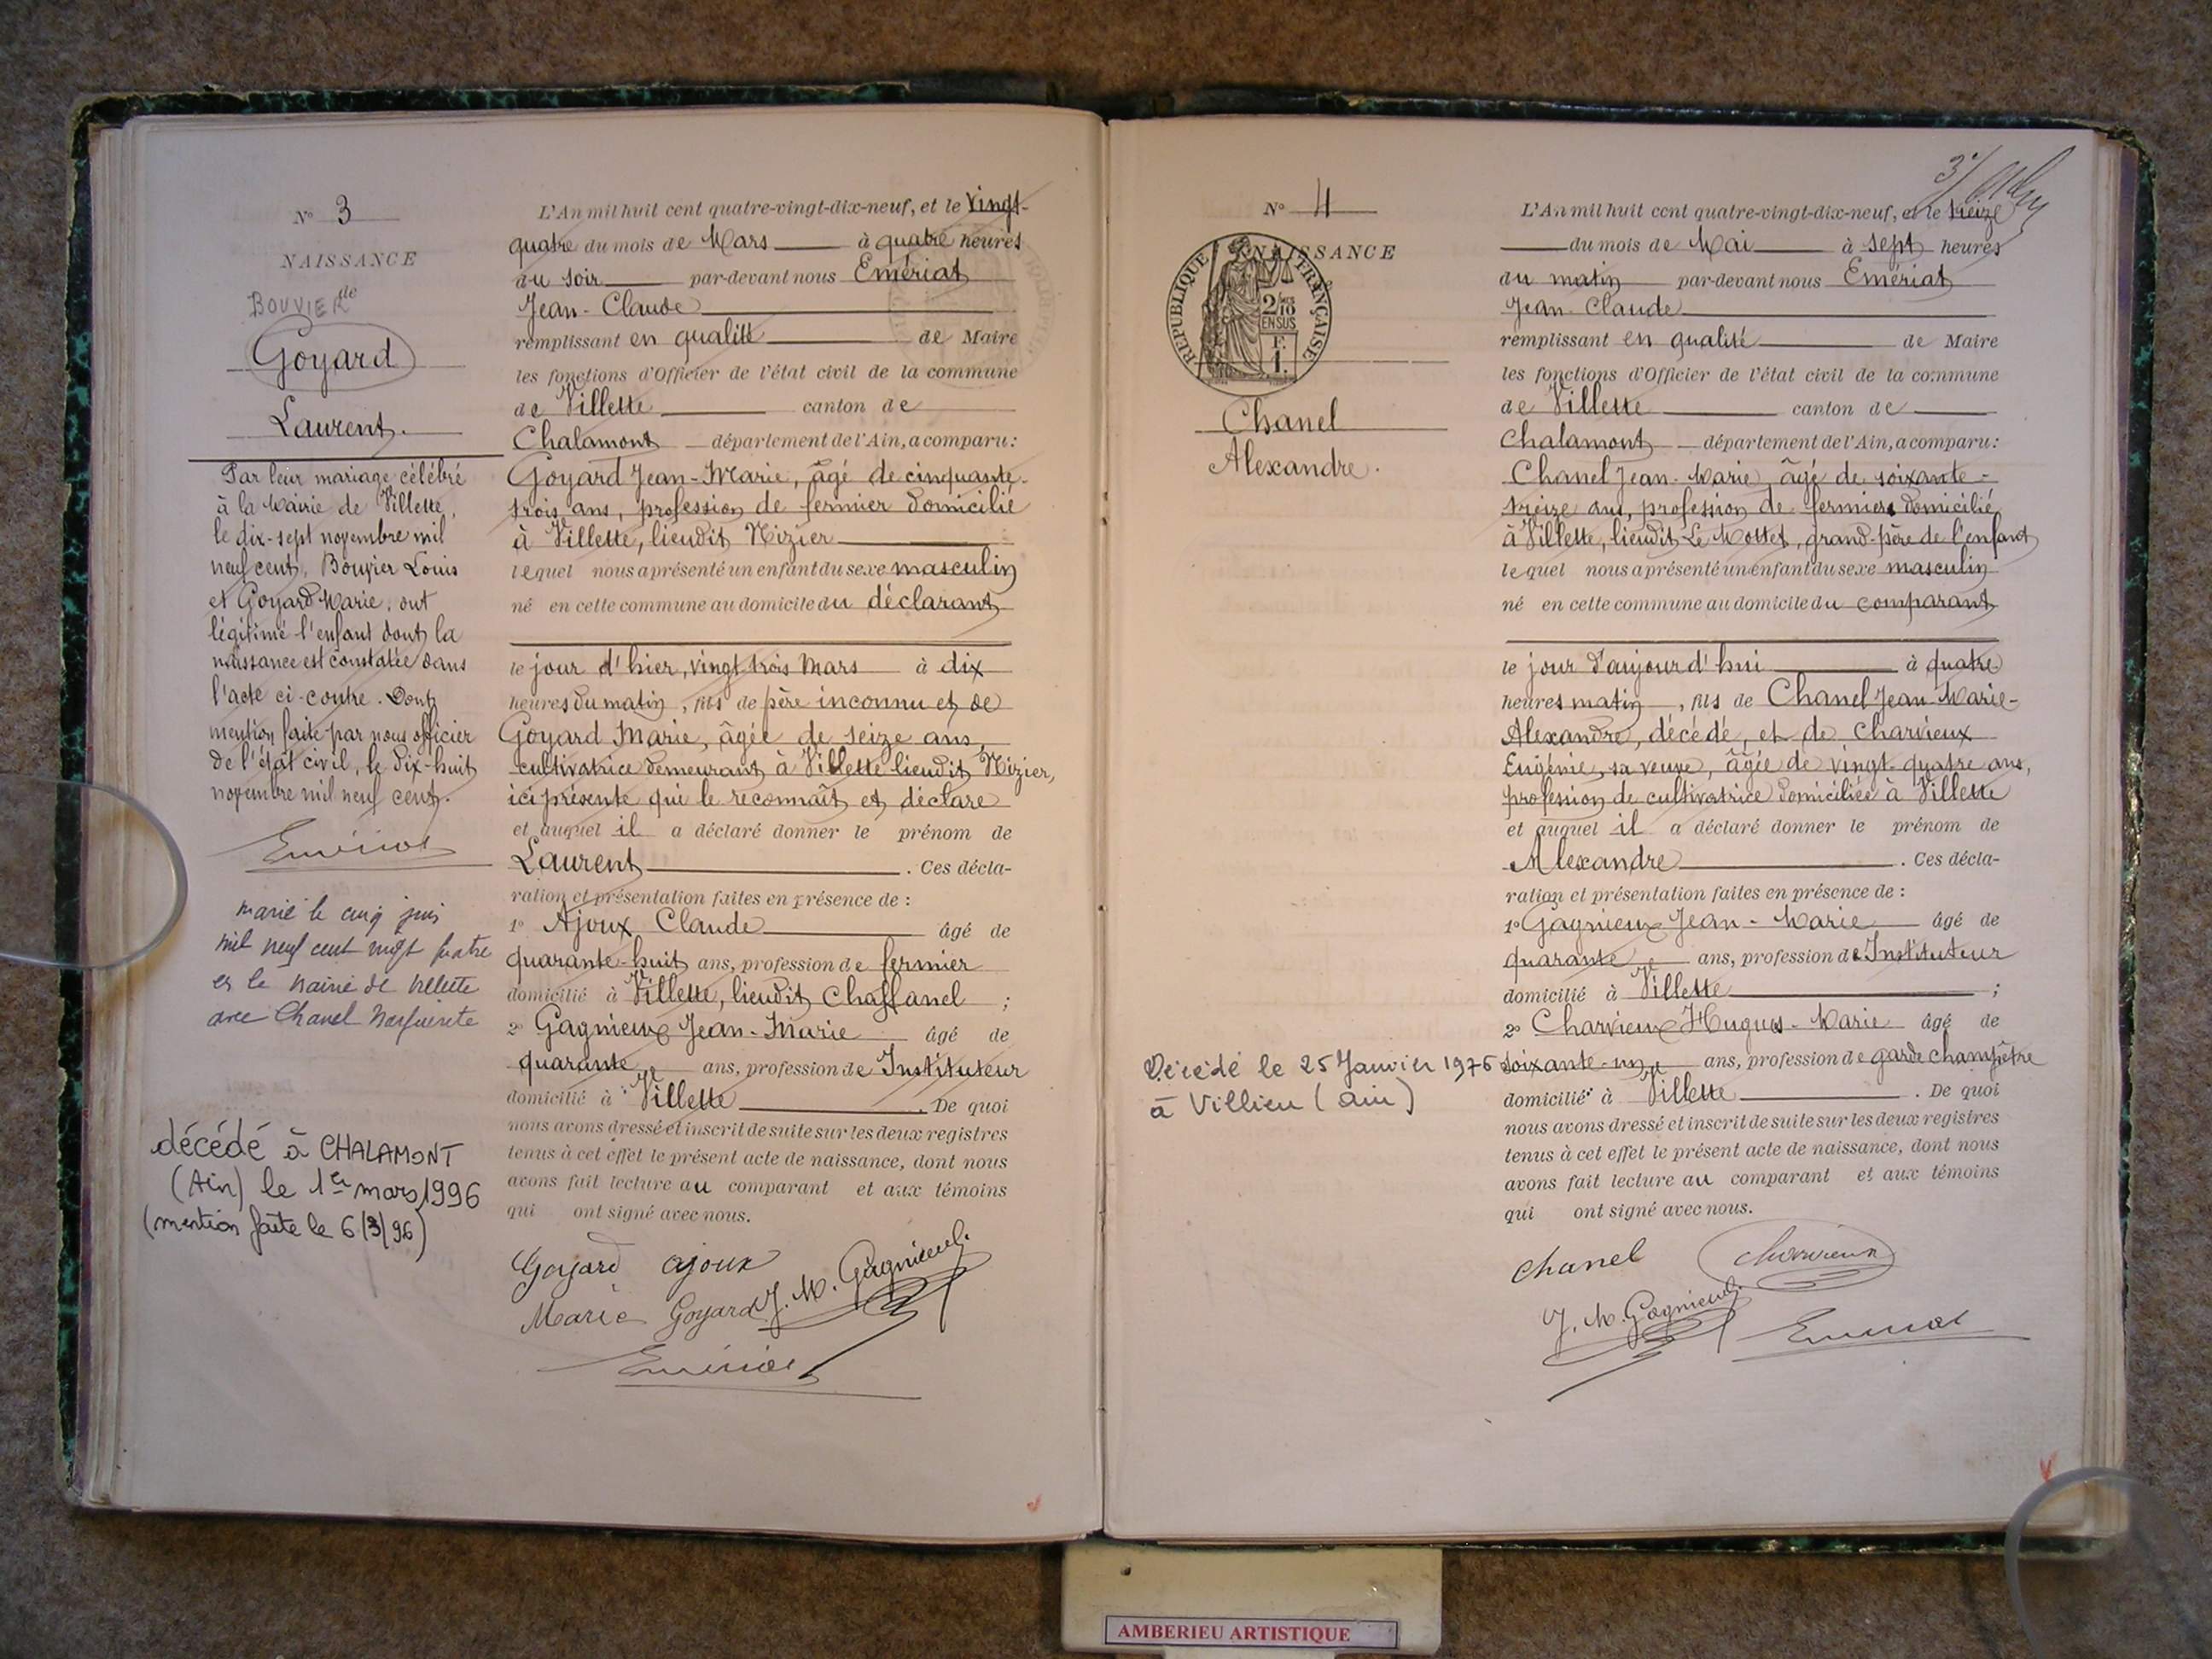 N° 3
NAISSANCE
BOUVIER dit
Goyard
Laurent.
Par leur mariage célébré
à la Mairie de Villette,
le dix-sept novembre mil
neuf cent, Bouvier Louis
et Goyard Marie, ont
légitimé l'enfant dont la
naissance est constatée dans
l'acte ci-contre. Dont
mention faite par nous officier
de l'état civil, le dix-huit
novembre mil neuf cent.
Emériat
marié le cinq juin
mil neuf cent vingt quatre
en la mairie de Villette
avec Chanel Marguerite
décédé à CHALAMONT
(Ain) le 1er mars 1996
(mention faite le 6/3/96)
L'An mil huit cent quatre-vingt-dix-neuf, et le vingt-
quatre du mois de Mars à quatre heures
du soir par-devant nous Emériat
Jean-Claude
remplissant en qualité de Maire
les fonctions d'Officier de l'état civil de la commune
de Villette canton de
Chalamont département de l'Ain, a comparu :
Goyard Jean-Marie, âgé de cinquante-
trois ans, profession de fermier domicilié
à Villette, lieudit Nizier
lequel nous a présenté un enfant du sexe masculin
né en cette commune au domicile du déclarant
le jour d'hier, vingt trois Mars à dix
heures du matin, fils de père inconnu et de
Goyard Marie, âgée de seize ans,
cultivatrice demeurant à Villette lieudit Nizier,
ici présente qui le reconnaît et déclare
et auquel il a déclaré donner le prénom de
Laurent . Ces décla-
ration et présentation faites en présence de :
1° Ajoux Claude âgé de
quarante-huit ans, profession de fermier
domicilié à Villette, lieudit Chaffanel ;
2° Gagnieux Jean-Marie âgé de
quarante ans, profession de Instituteur
domicilié à Villette . De quoi
nous avons dressé et inscrit de suite sur les deux registres
tenus à cet effet le présent acte de naissance, dont nous
avons fait lecture au comparant et aux témoins
qui ont signé avec nous.
Goyard ajoux
Marie Goyard J. M. Gagnieux
Emériat
N° 4
NAISSANCE
REPUBLIQUE FRANÇAISE
2/10
EN SUS
F.
1.
Chanel
Alexandre.
Décédé le 25 Janvier 1976
à Villieu (ain)
L'An mil huit cent quatre-vingt-dix-neuf, et le treize
du mois de Mai à sept heures
du matin par-devant nous Emériat
Jean-Claude
remplissant en qualité de Maire
les fonctions d'Officier de l'état civil de la commune
de Villette canton de
Chalamont département de l'Ain, a comparu :
Chanel Jean-Marie, âgé de soixante-
treize ans, profession de fermier domicilié
à Villette, lieudit Le Mottet, grand-père de l'enfant
lequel nous a présenté un enfant du sexe masculin
né en cette commune au domicile du comparant
le jour d'aujourd'hui à quatre
heures matin, fils de Chanel Jean-Marie-
Alexandre, décédé, et de Charvieux
Eugénie, sa veuve, âgée de vingt-quatre ans,
profession de cultivatrice domiciliée à Villette
et auquel il a déclaré donner le prénom de
Alexandre . Ces décla-
ration et présentation faites en présence de :
1° Gagnieux Jean-Marie âgé de
quarante ans, profession de Instituteur
domicilié à Villette ;
2° Charvieux Hugues-Marie âgé de
soixante-un ans, profession de garde champêtre
domicilié à Villette . De quoi
nous avons dressé et inscrit de suite sur les deux registres
tenus à cet effet le présent acte de naissance, dont nous
avons fait lecture au comparant et aux témoins
qui ont signé avec nous.
chanel charvieux
J. M. Gagnieux
Emériat
AMBERIEU ARTISTIQUE